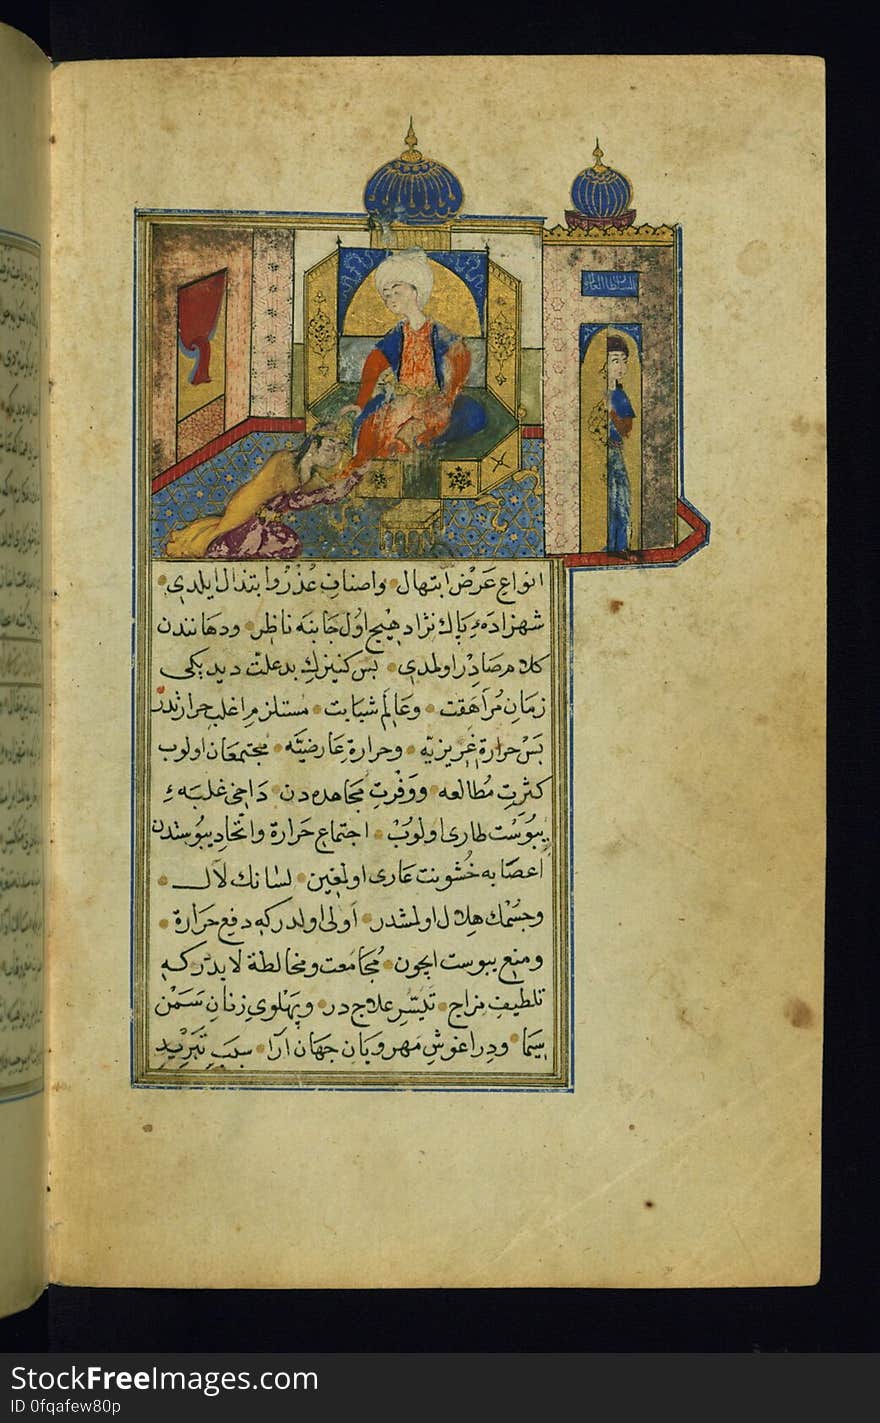 السلطان العالم
انواع عَرْضِ ابتهال واصنافِ عُذْر وابتذال ايلدى
شهزادهء پاك نژاد هيچ اول جَانبَه ناظر ودهانندن
كلام صَادِر اولمدى بس كنيزك بدعلّت ديديكى
زمَانِ مُرَاهَقت وعَالَم شبَابت مستلزم اغلب حرارتدر
بَس حرارة غريزيّه وحرارة عَارضيّه مجتمعَان اولوب
كثرتِ مُطالعه ووَفْرتِ مجَاهده دن دَاخى غلبَهء
يبُوسَت طارى اولوبْ اجتماع حَرارة واتّحادِ يبُوستدن
اعصَابه خُشونت عَارى اولمغين لسَانك لاَل
وجسْمك هلاَل اولمشدر اَولى اولدركه دفع حَرَارة
ومنع يبوست ايچون مُجَامعَت ومخَالطة لابدّركه
تلطيفِ مزاج تَيسّرِ علاجدر وپَهْلوىِ زنانِ سَمَنْ
سِيَمَا ودرَاغوشِ مَهرويَانِ جهَان آرَا سبَبِ تَبْرِيْدِ
StockFreeImages.com
ID 0fqafew80p